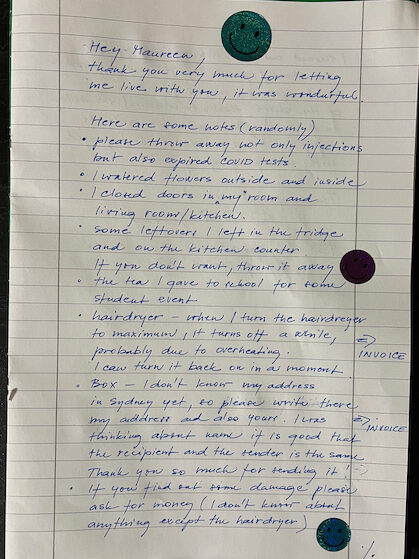 Hey Maureen,
thank you very much for letting
me live with you, it was wonderful.
Here are some notes (randomly)
• please throw away not only injections
but also expired COVID tests.
• I watered flowers outside and inside
• I closed doors in "my" room and
living room/kitchen.
• some leftovers I left in the fridge
and on the kitchen counter
If you don't want, throw it away
• the tea I gave to school for some
student event
• hairdryer – when I turn the hairdryer
to maximum, it turns off a while, => INVOICE
probably due to overheating.
I can turn it back on in a moment
• Box – I don't know my address
in Sydney yet, so please write there
my address ad also yours. I was => INVOICE
thinking about name if is good that
the recipient and the sender is the same
Thank you so much for sending it! :-)
• If you find out some damage please
ask for money (I don't know about
anything except the hairdryer)
./.